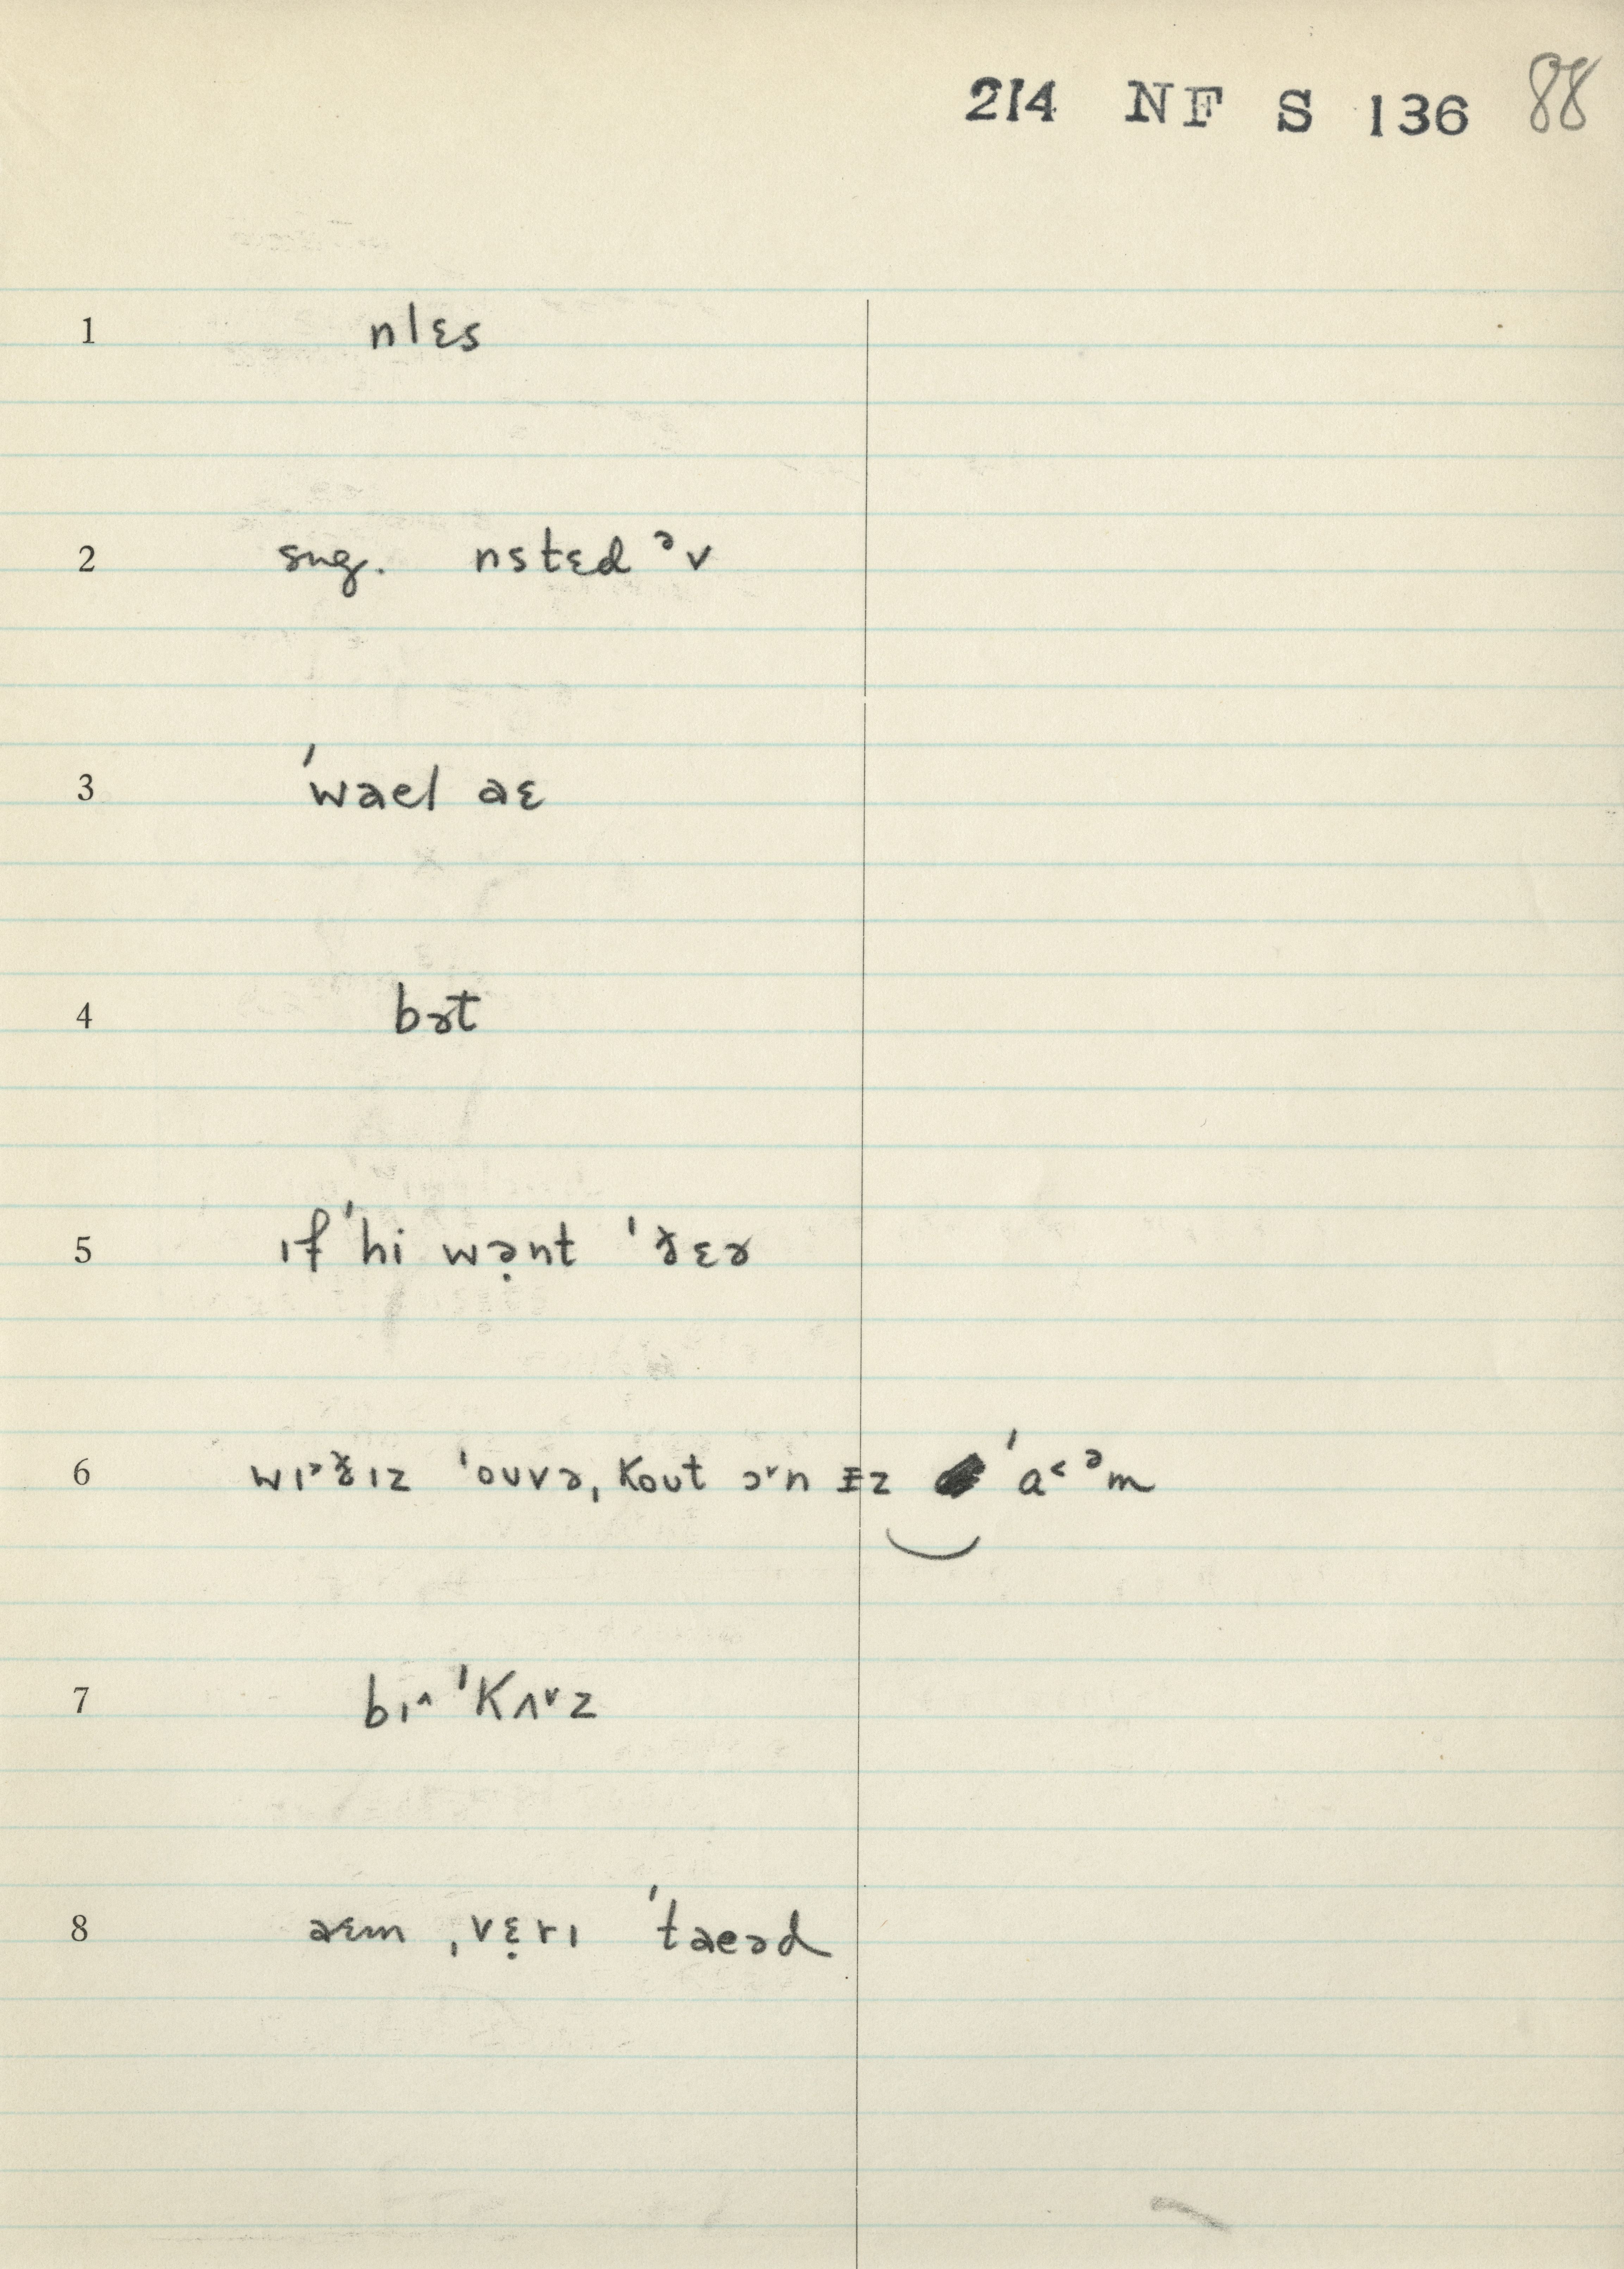 214 NF S 136 88
1 nlɛs
2 sug. nstɛd ᵊv
3 ˈwael aɛ
4 bɚt
5 ɪf ˈhi wə̣nt ˈð̵ɛɚ
6 wɪ˃ðɪz ˈoʊvə, koʊt ə˅n ᵻz ˈa˂ ᵊm
7 bɪ^ ˈkʌ˅z
8 aɛm ˌvɛ̣rɪ ˈtaeəd